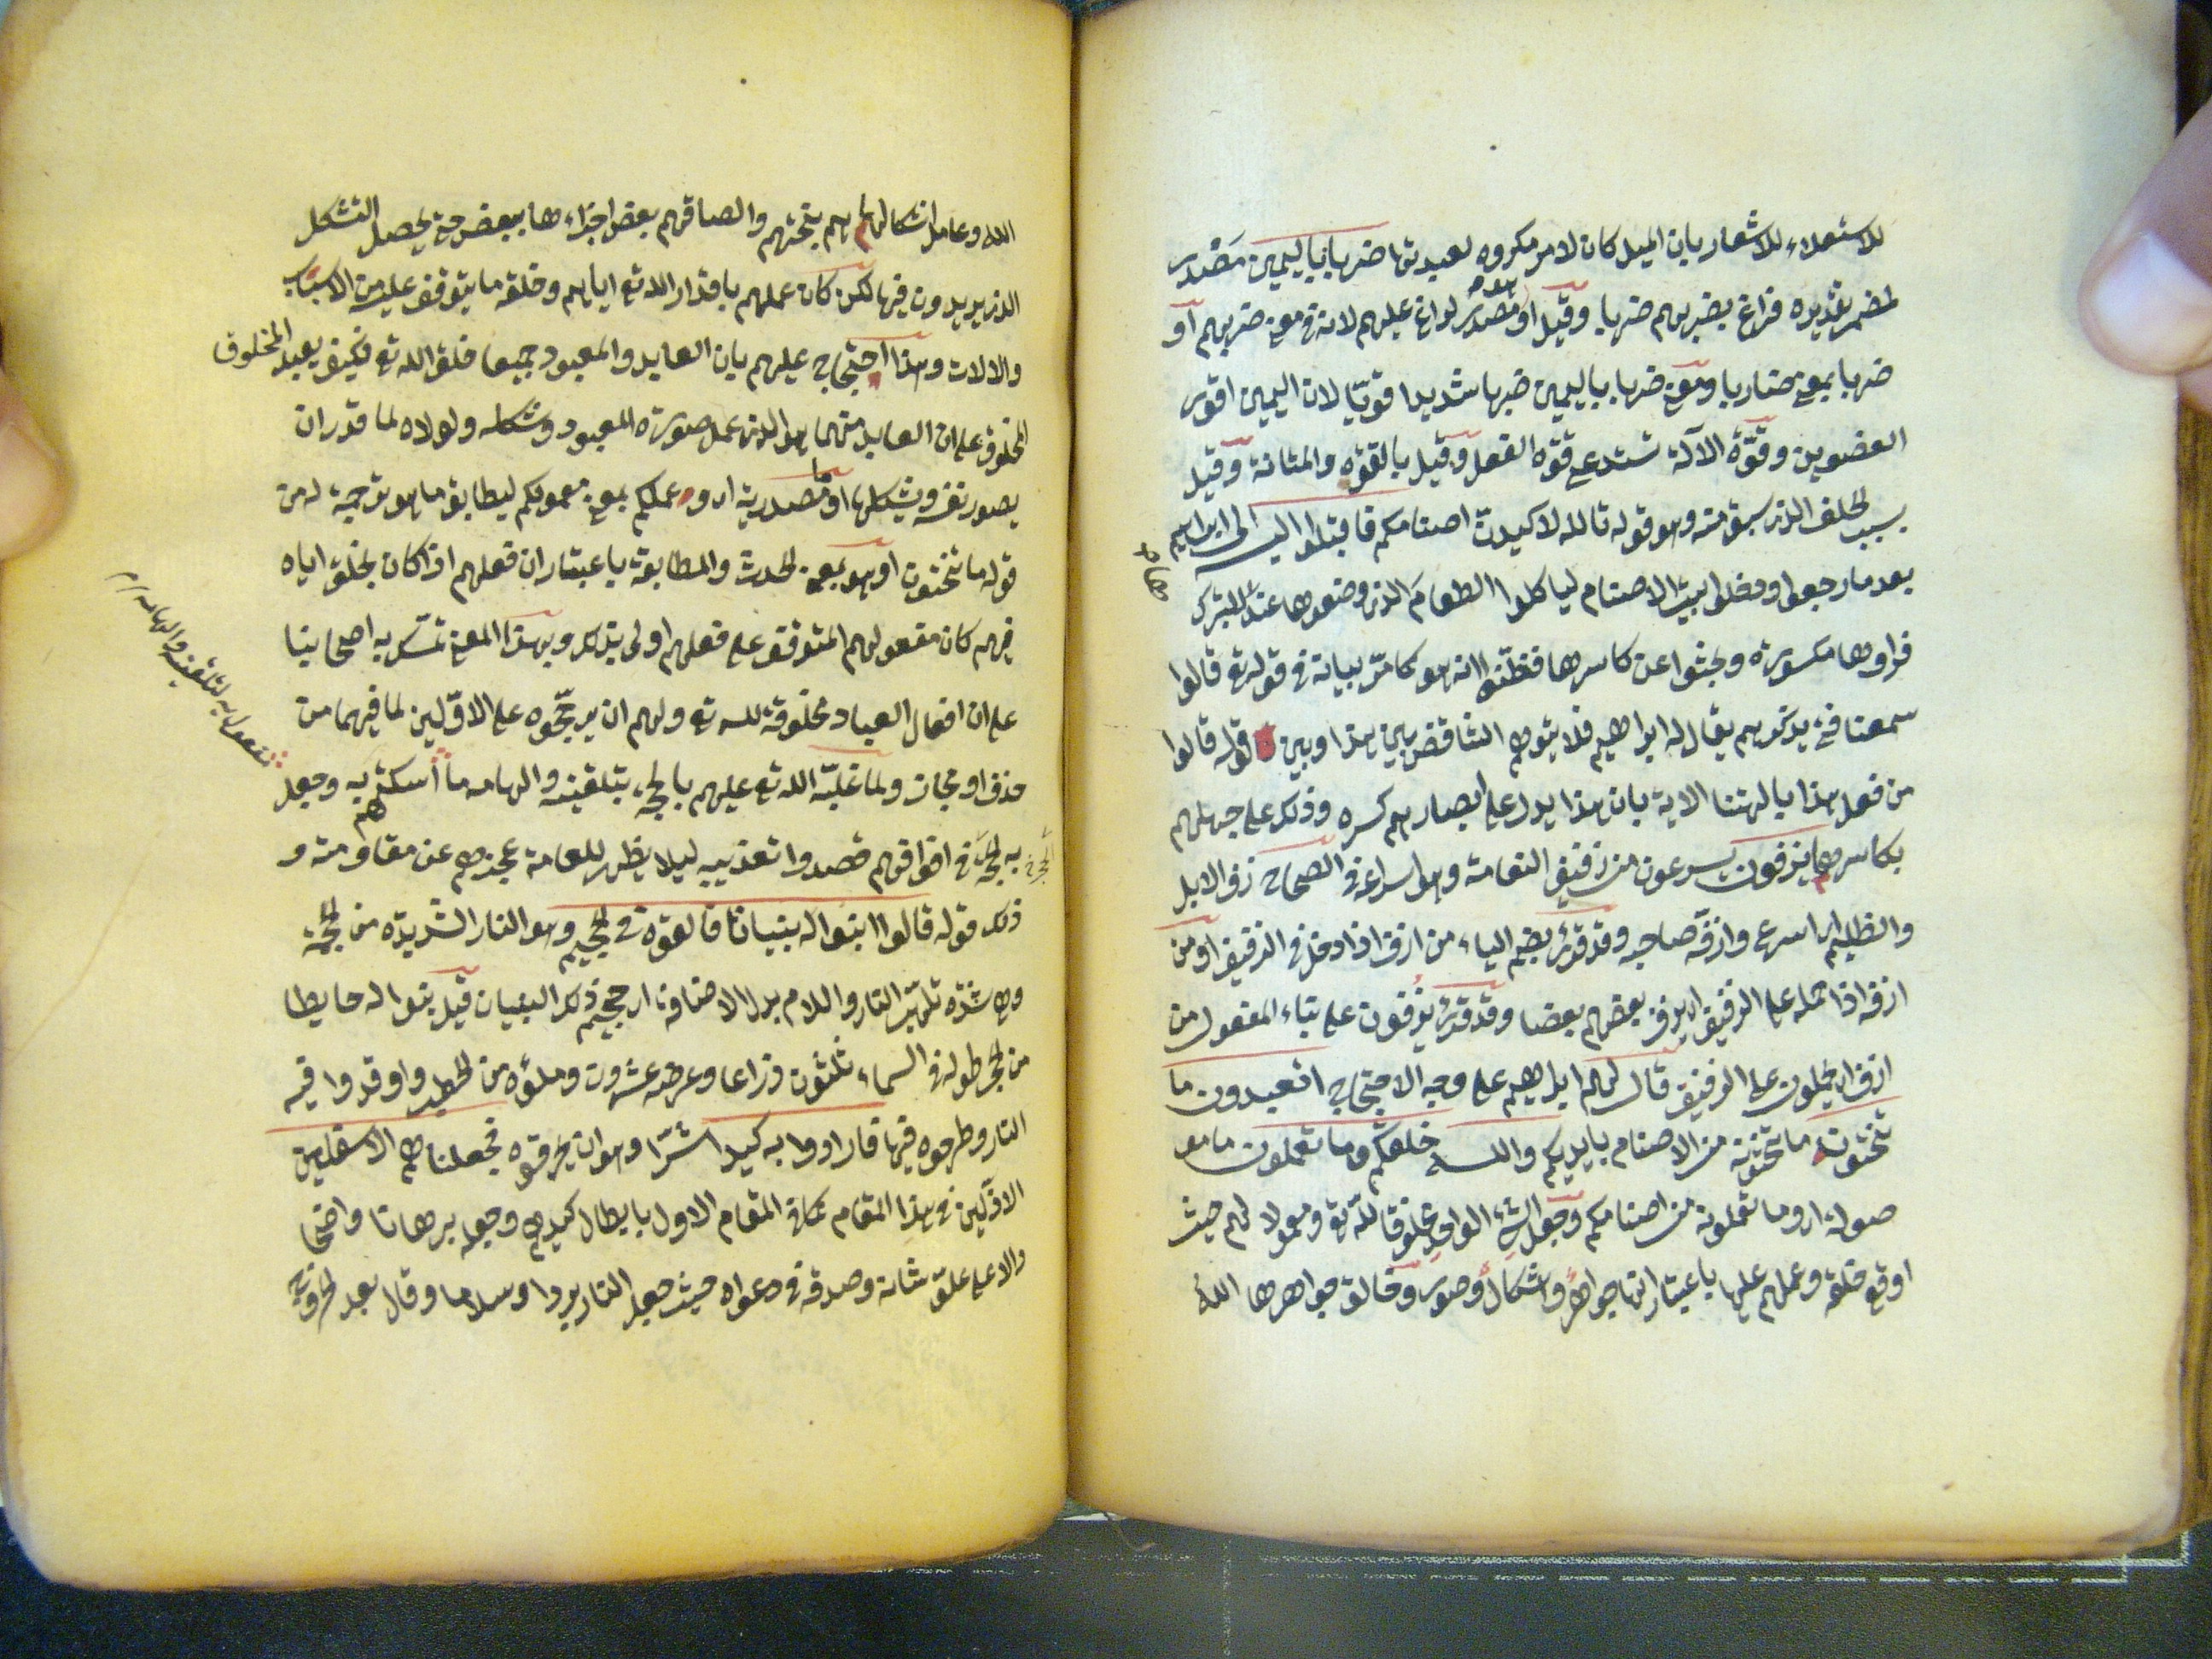 للاستعلاء للاشعار بان الميل كان لامر مكروه لعبدتها ضربا باليمين مصدر
لمضمر تقديره فراغ يضربهم ضربا وقيل او مصدر لراغ عليهم لانه في معنى ضربهم او
ضربا بمعنى ضاربا ومعنى ضربا باليمين ضربا شديدا قويا لان اليمين اقوى
العضوين وقوة الآلة تستدعي قوة الفعل وقيل بالقوة والمتانة وقيل
بسبب الحلف الذي سبق منه وهو قوله تالله لاكيدن اصنامكم فاقبلوا اليه الى ابراهيم
بعد ما رجعوا ودخلوا بيت الاصنام لياكلوا الطعام الذي وضعوها عند للتبرك
فراوها مكسورة وبحثوا عن كاسرها فظنوا انه هو كما مر بيانه في قوله تع قالوا
سمعنا فتى يذكرهم يقال له ابراهيم فلا يتوهم التناقض بين هذا وبين قوله قالوا
من فعل هذا بالهتنا الاية بان هذا يدل على ابصارهم كسره وذلك على جهلهم
بكاسرها يزفون يسرعون من زفيف النعامة وهو اسراعه في الصحاح زف الابل
والظليم اي اسرع وازفه صاحبه وقد قرئ بضم الياء من ازف اذا دخل في الزفيف او من
ازفه اذا حمله على الزفيف اي يزف بعضهم بعضا وقد قرئ يزفون على بناء المفعول من
ازف اي يحملون على الزفيف قال لهم ابراهيم على وجه الاحتجاج اتعبدون ما
تنحتون ما تنحتونه من الاصنام بايديكم والله خلقكم وما تعملون ما مو
صولة اي وما تعملونه من اصنامكم وجعل الشئ الواحد مخلوقا لله تع ومعمولا لهم حيث
اوقع خلقه وعملهم عليها باعتبار انها جواهر واشكال وصور وخالق جواهرها الله
الله وعامل اشكالها هم بنحتهم والصاقهم بعض اجزاءها ببعض حتى يحصل التشكل
الذي يريدون فيها لكن كان عملهم باقدار الله تع اياهم وخلقه ما يتوقف عليه من الاسباب
والالات وهذا احتجاج عليهم بان العابد والمعبود جميعا خلق الله تع فكيف يعبد المخلوق
المخلوق على ان العابد منهما هو الذي عمل صورة المعبود وشكله ولولاه لما قدر ان
يصور نفسه ويشكلها او ما مصدرية اي وعملكم بمعنى معمولكم ليطابق ما هو ترجمة له من
قوله ما تنحتون او هو بمعنى الحدث والمطابقة باعتبار ان فعلهم اذا كان بخلق اياه
فيهم كان مفعولهم المتوقف على فعلهم اولى بذلك وبهذا المعنى تمسك به اصحابنا
على ان افعال العباد مخلوقة لله تع ولهم ان يرجحوه على الاولين لما فيهما من
حذف او مجاز ولما غلبه الله تع عليهم بالحجة بتلقينه والهامه ما اسكتهم به وجعل
به الحجر في افواههم قصدوا تعذيبه ليلا يظهر للعامة عجزهم عن مقاومته و
ذلك قوله قالوا ابنوا له بنيانا فالقوه في الجحيم وهو النار الشديدة من الجحمة
وهي شدة تلهب النار واللام بدل الاضافة اي جحيم ذلك البنيان قيل بنوا له حايطا
من الحجر طوله في السماء ثلثون ذراعا وعرضه عشرون وملؤه من الحطب واوقدوا فيه
النار وطرحوه فيها فارادوا به كيدا شرا وهو ان يحرقوه فجعلناهم الاسفلين
الاذلين في هذا المقام كما في المقام الاول بابطال كيدهم وجعله برهانا واضحا
والاعلى علو شانه وصدقه في دعواه حيث جعل النار بردا وسلاما وقال بعد خروجه